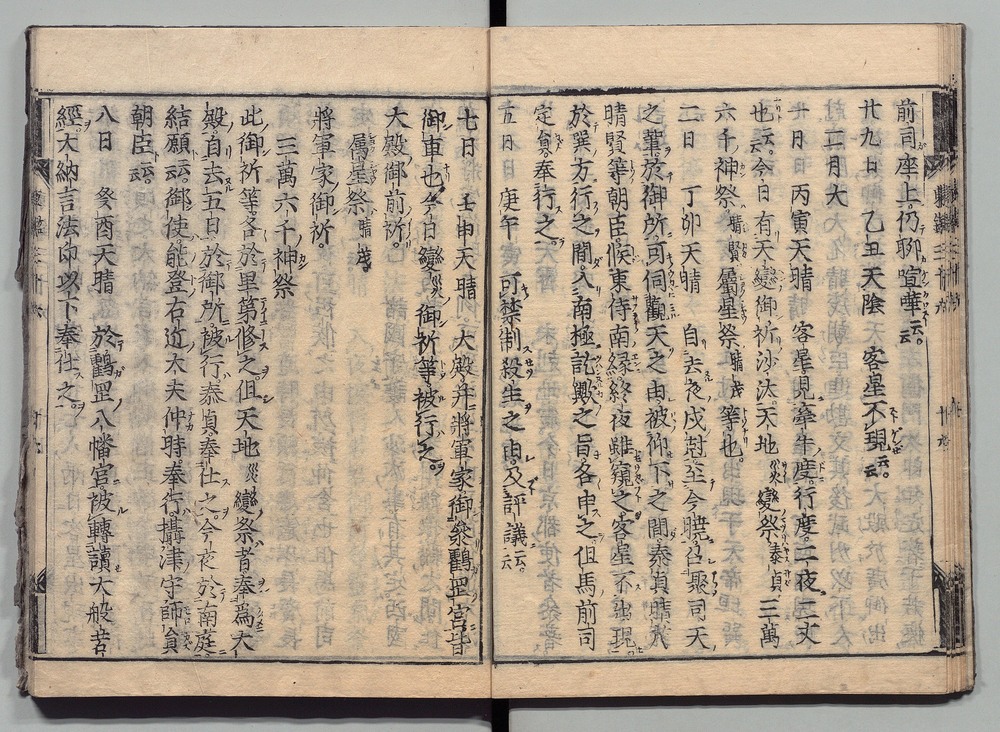 前司座上仍聊喧嘩云云
廿九日 乙丑天陰 客星不現云云
二月大
一日 丙寅天晴 客星見牽牛度行度二夜三丈
也云云今日有天變御祈沙汰天地災變祭泰貞三萬
六千神祭晴賢屬星祭晴茂等也
二日 丁卯天晴 自去夜戌尅至今曉召聚司天
之輩於御所可伺觀天之由被仰下之間泰貞晴茂
晴賢等朝臣候東侍南縁終夜雖窺之客星不出現
於巽方行之間入南極訖歟之旨各申之但馬前司
定員奉行之
五日 庚午 可禁制殺生之由及評議云云
七日 壬申天晴 大殿并將軍家御參鶴罡宮皆
御車也今日變災御祈等被行之
大殿御前祈
屬星祭 晴茂
將軍家御祈
三萬六千神祭
此御祈等各於里第修之但天地災變祭者奉爲大
殿自去五日於御所被行泰貞奉仕之今夜於南庭
結願云云御使能登右近大夫仲時奉行攝津守師員
朝臣云云
八日 癸酉天晴 於鶴罡八幡宮被轉讀大般若
經大納言法印以下奉仕之